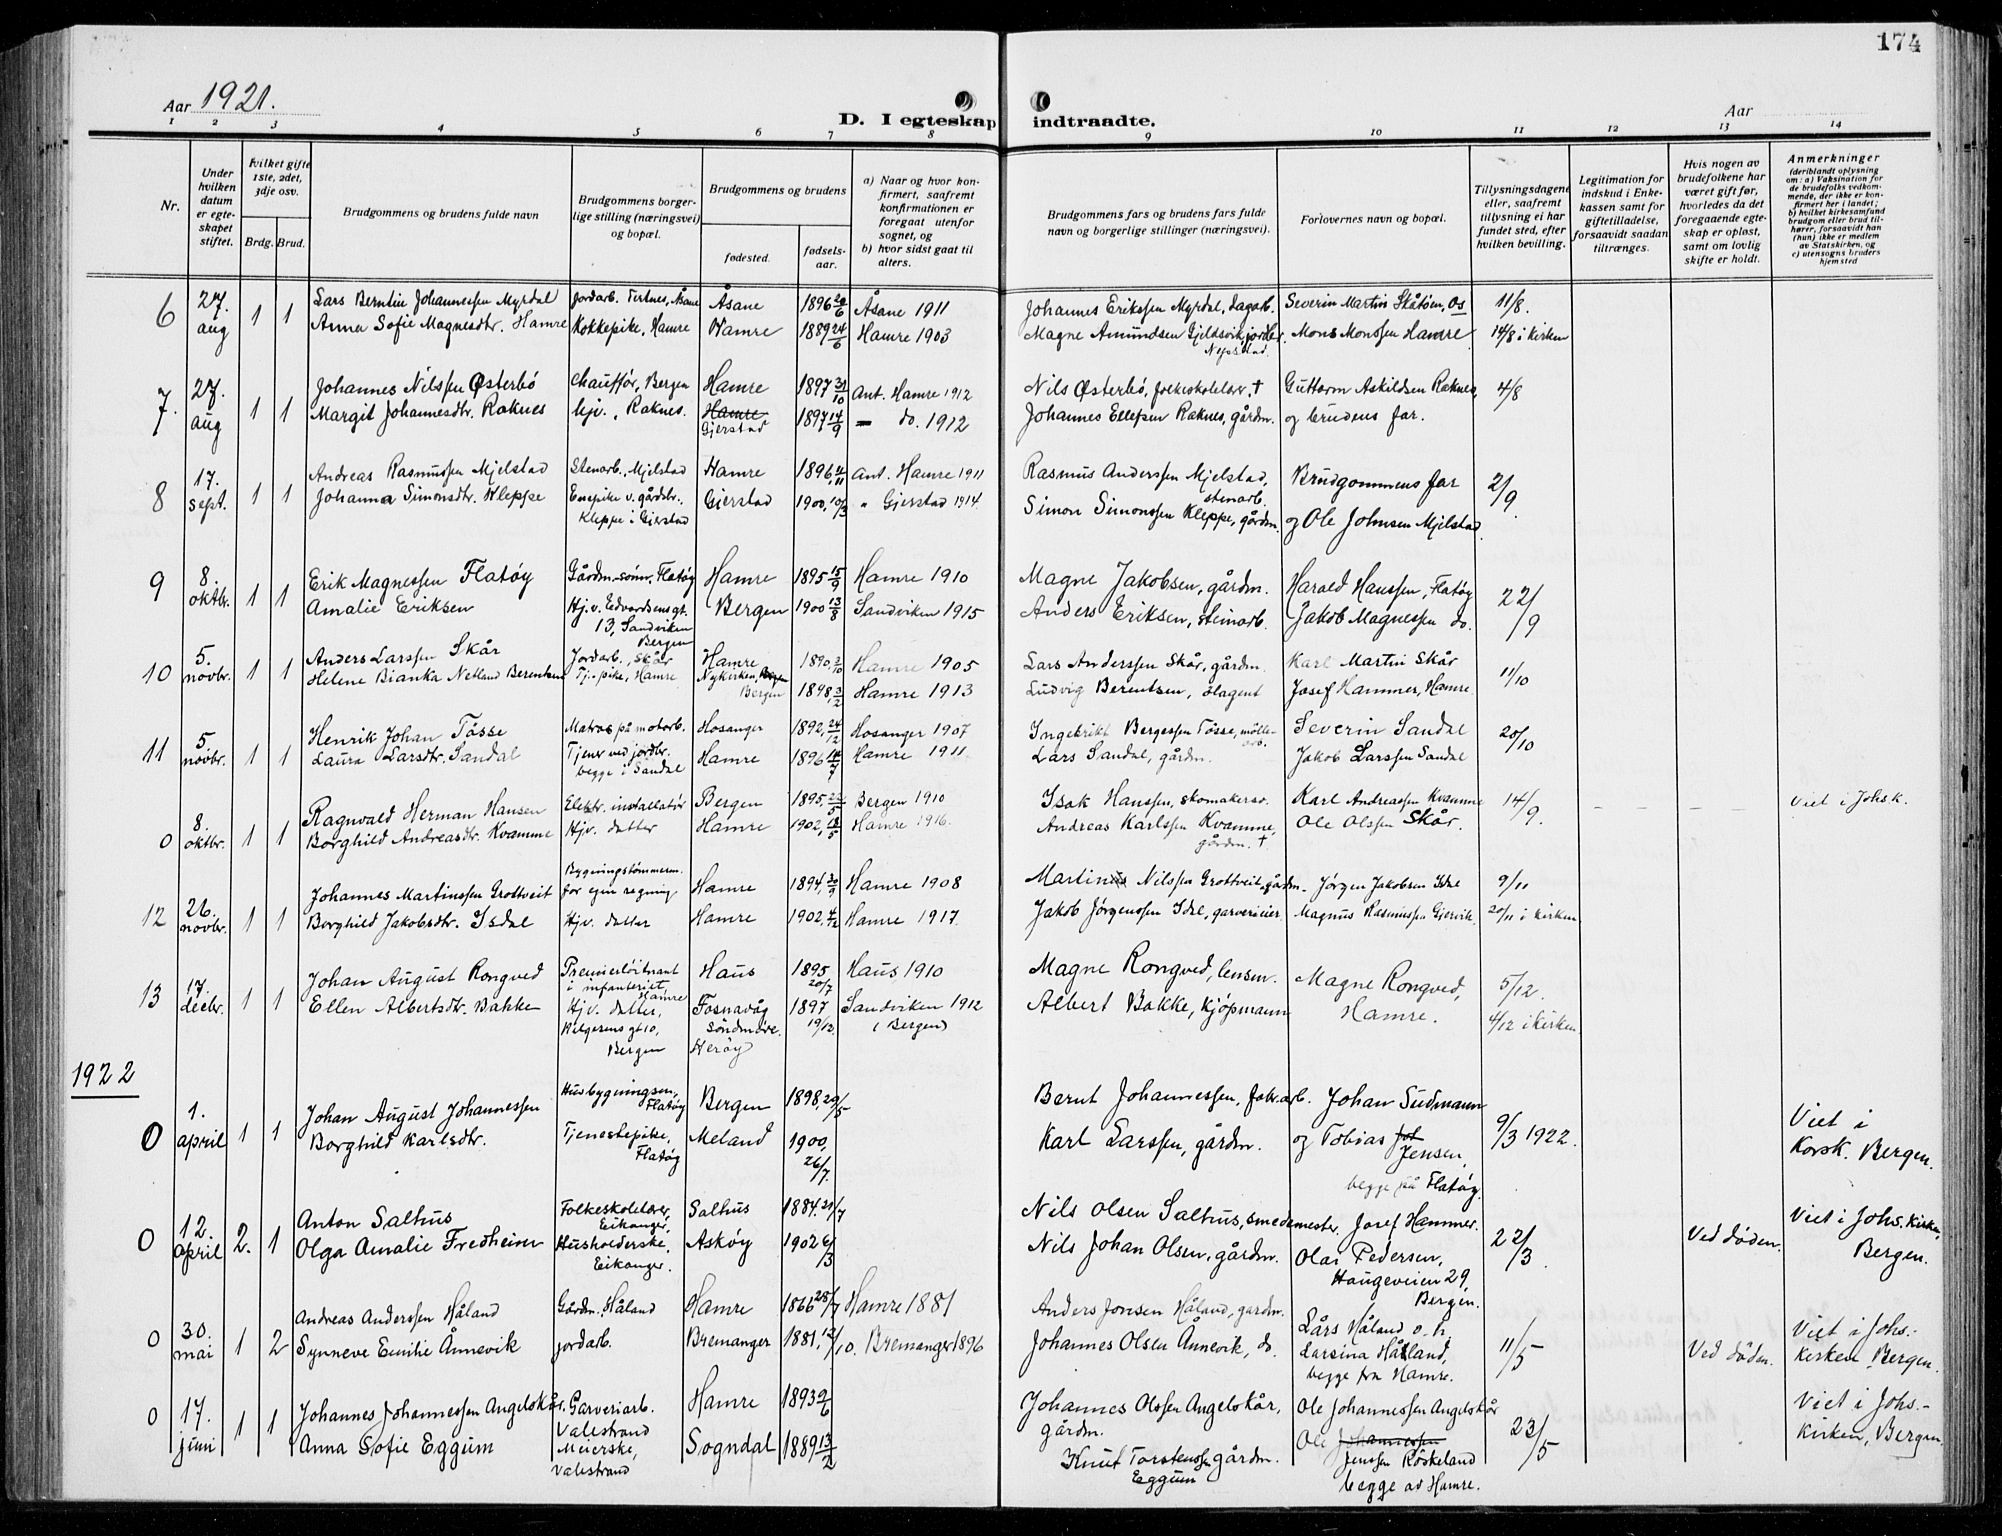 174
Aar 1921.
Aar
D. I egteskap indtraadte.
1 2 3 4 5 6 7 8 9 10 11 12 13 14
Nr.
Under hvilken datum er egteskapet stiftet.
Hvilket gifte 1ste, 2det, 3dje osv.
Brdg. Brud.
Brudgommens og brudens fulde navn
Brudgommens borgerlige stilling (næringsvei) og bopæl.
Brudgommens og brudens
fødested. fødselsaar.
a) Naar og hvor konfirmert, saafremt konfirmationen er foregaat utenfor sognet, og
b) hvor sidst gaat til alters.
Brudgommens fars og brudens fars fulde navn og borgerlige stillinger (næringsvei).
Forlovernes navn og bopæl.
Tillysningsdagene eller, saafremt tillysning ei har fundet sted, efter hvilken bevilling.
Legitimation for indskud i Enkekassen samt for giftetilladelse, forsaavidt saadan tiltrænges.
Hvis nogen av brudefolkene har været gift før, hvorledes da det foregaaende egteskap er opløst, samt om lovlig skifte er holdt.
Anmerkninger (deriblandt oplysning om: a) Vaksination for de brudefolks vedkommende, der ikke er konfirmert her i landet; b) hvilket kirkesamfund brudgom eller brud tilhører, forsaavidt han (hun) ikke er medlem av Statskirken, og c) utensogns bruders hjemsted
6 27. aug 1 1 Lars Berntin Johannessen Myrdal Jordarb. Tertnes, Åsane Åsane 1896 20/6 Åsane 1911 Johannes Eriksen Myrdal, dagarb. Severin Martin Skåtøen, Os 11/8.
Anna Sofie Magnesdtr. Hamre Kokkepike, Hamre Hamre 1889 24/6 Hamre 1903 Magne Amundsen Gjeldsvik, jordbr. Mons Monssen Hamre 14/8 i kirken
7. 27. aug 1 1 Johannes Nilssen Østerbö Chauffør, Bergen Hamre 1897 31/10 Ant. Hamre 1912 Nils Østerbö, folkeskolelær. † Guttorm Askildsen Raknes, 4/8
Margit Johannesdtr. Raknes hjv., Raknes. Hamre Gjerstad 1897 14/9 — do. 1912 Johannes Ellefsen Raknes, gårdm. og brudens far.
8 17. sept. 1 1 Andreas Rasmussen Mjelstad Stenarb., Mjelstad Hamre 1896 4/11 Ant. Hamre 1911 Rasmus Anderssen Mjelstad, stenarb. Brudgommens far 2/9.
Johanna Simonsdtr. Kleppe Enepike v. gårdsbr., Kleppe i Gjerstad Gjerstad 1900, 10/3 " Gjerstad 1914. Simon Simonssen Kleppe, gårdm. og Ole Johnsen Mjelstad
9 8. oktbr. 1 1 Erik Magnessen Flatöy Gårdm.-sönn, Flatöy Hamre 1895 15/9 Hamre 1910 Magne Jakobsen, gårdm. Harald Hanssen, Flatöy 22/9
Amalie Eriksen Hj. v. Edvardsensgt. 13, Sandviken Bergen Bergen 1900 13/8 Sandviken 1915 Anders Eriksen, steinarb. Jakob Magnessen do.
10 5. novbr. 1 1 Anders Larssen Skår Jordarb., Skår Hamre 1890, 3/10 Hamre 1905 Lars Anderssen Skår, gårdm. Karl Martin Skår 11/10
Helene Bianka Netland Berentsen Tj.-pike, Hamre Nykirken, Bergen 1898, 3/2 Hamre 1913 Ludvig Berentsen, agent Josef Hammer, Hamre
11 5. novbr. 1 1 Henrik Johan Tösse Matros på motorb. Hosanger 1892, 24/12 Hosanger 1907 Ingebrikt Bergessen Tösse, möllearb. Severin Sandal 20/10
Laura Larsdtr. Sandal Tjener ved jordbr. begge i Sandal Hamre 1896 14/7 Hamre 1911. Lars Sandal, gårdm. Jakob Larssen Sandal
0 8. oktbr. 1 1 Ragnvald Herman Hansen Elektr. installatör Bergen 1895, 22/5 Bergen 1910 Isak Hanssen, skomakersv. Karl Andreassen Kvamme 14/9 — — — — Viet i Johsk.
Borghild Andreasdtr. Kvamme Hjv. datter Hamre 1902, 18/5 Hamre 1916. Andreas Karlssen Kvamme, gårdm. † Ole Olssen Skår.
12 26. novbr. 1 1 Johannes Martinssen Grottveit Bygningstömmerm. for egen regning Hamre 1894, 30/9 Hamre 1908 Martin Nilssen Grottveit, gårdm. Jörgen Jakobsen Isdal 9/11
Borghild Jakobsdtr. Isdal Hjv. datter Hamre 1902 4/12 Hamre 1917. Jakob Jörgenssen Isdal, garverieier. Magnus Rasmussen Gjervik. 20/11 i kirken
13 17. decbr. 1 1 Johan August Rongved Premierlöitnant i infanteriet, Hamre Haus 1895 20/7 Haus, 1910 Magne Rongved, lensm. Magne Rongved, Hamre. 5/12.
Ellen Albertsdtr. Bakke Hjv. datter, gt 10, Bergen Fosnavåg Söndmöre. Heröy 1897 19/12 Sandviken 1912 (Bergen) Albert Bakke, kjöpmann 4/12 i kirken
1922
0 1. april 1 1 Johan August Johannessen Husbygningsm., Flatöy Bergen 1898, 29/5 Bernt Johannessen, fabr.arb. Johan Sudmann 9/3 1922. Viet i Korsk. Bergen.
Borghild Karlsdtr. Tjenestepike, Flatöy Meland 1900, 26/7. Karl Larssen, gårdm. og Tobias Jensen, begge på Flatöy.
0 12. april 2. 1 Anton Salhus Folkeskolelærer, Eikanger. Salhus 1884. 21/7 Nils Olsen Salhus, smedemester. Josef Hammer. 22/3 Ved döden. Viet i Johs. kirke, Bergen.
Olga Amalie Fredheim Husholderske, Eikanger. Asköy 1902 6/3 Nils Johan Olsen, gårdm. Olai Pedersen, Haugeveien 29, Bergen.
0 30. mai 1 2 Andreas Anderssen Håland Gårdm. Håland Hamre 1866 28/7 Hamre 1881 Anders Jonsen Håland, gardm. Lårs Håland o. h. 11/5 Ved döden. Viet i Johs.-kirken, Bergen.
Synneve Emilie Ånnevik jordarb. Bremanger 1881, 12/10. Bremanger 1896 Johannes Olsen Ånnevik, do. Larsina Håland, begge fra Hamre.
0 17. juni 1 1 Johannes Johannessen Angelskår. Garveriarb. Valestrand Hamre 1893 9/6 Johannes Olssen Angelskår, gårdm. Ole Johannessen Angelskår 23/5 Viet i Johs.-kirken, Bergen.
Anna Sofie Eggum Meierske, Valestrand Sogndal 1889 13/2 Knut Torstenssen Eggum gårdm. Ole Johannessen Jenssen Röskeland begge av Hamre.